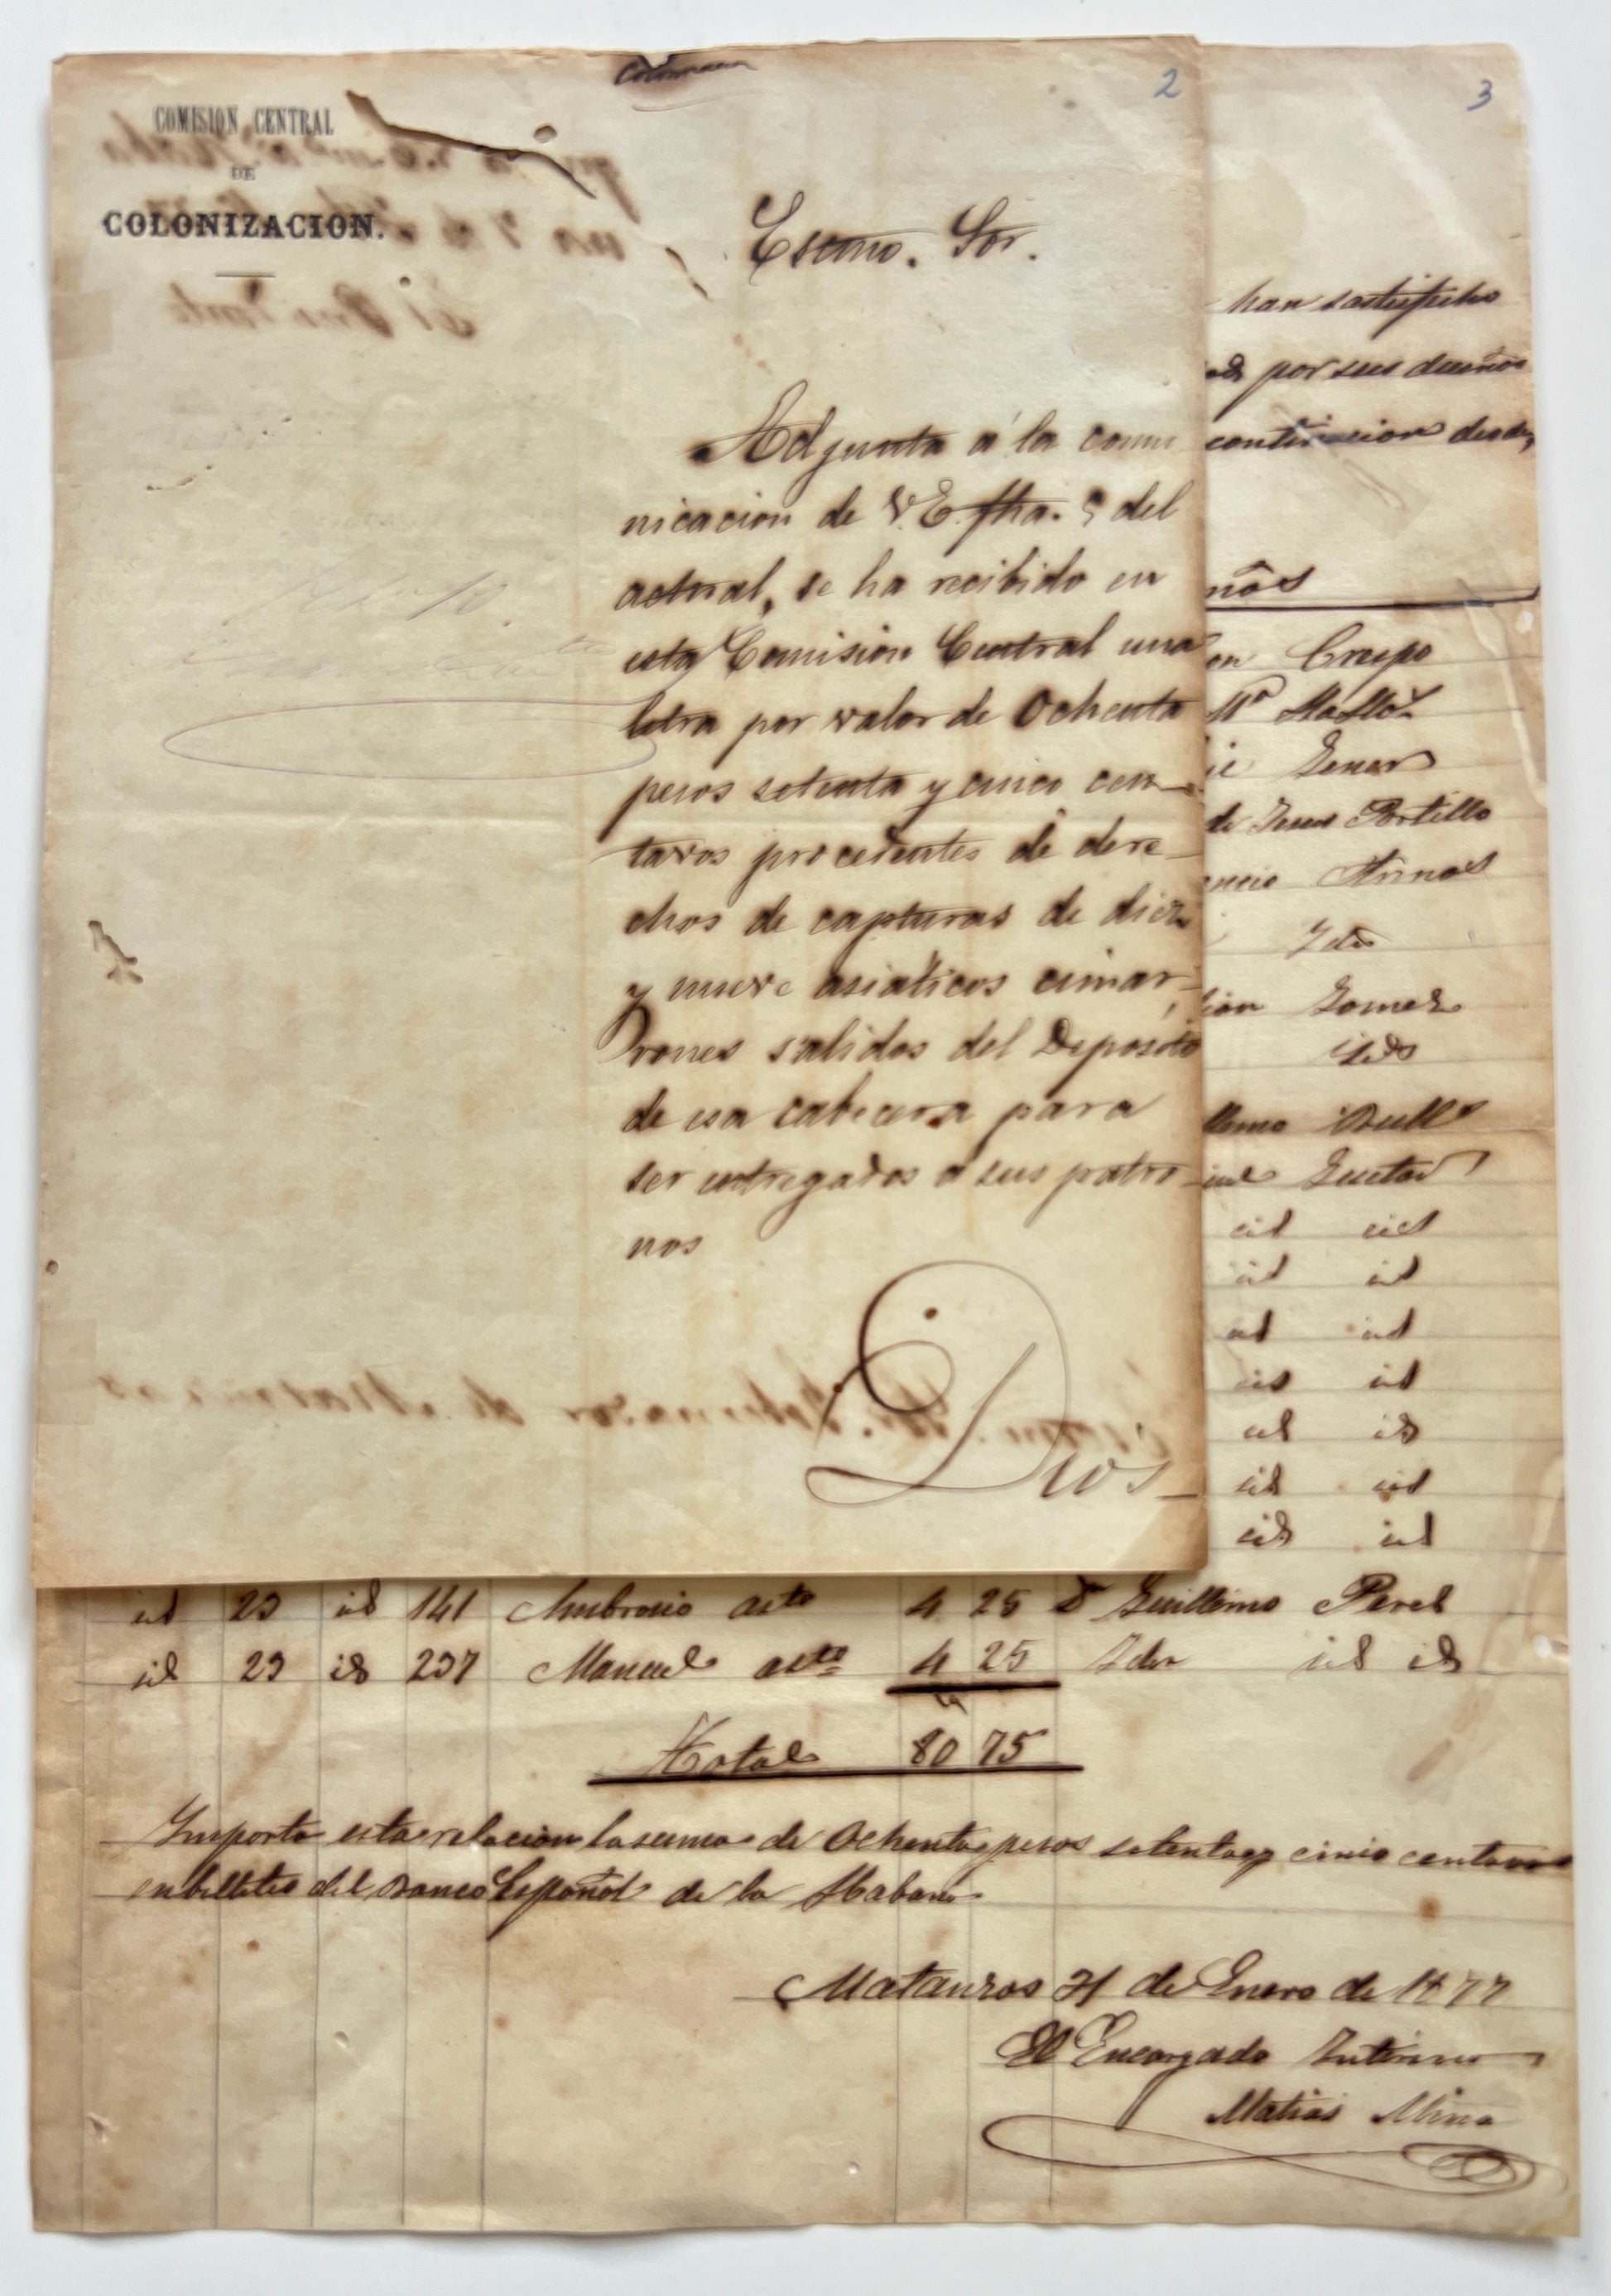 Colonizacion
2
COMISION CENTRAL
DE
COLONIZACION.
Escmo. Sor.
Adjunta á la comu
nicacion de V.E. fha. 9 del
actual, se ha recibido en
esta Comision Central una
letra por valor de Ochenta
pesos setenta y cinco cen-
tavos procedentes de dere-
chos de capturas de diez
y nueve asiáticos cimar-
rones salidos del Depósito
de esa cabecera para
ser entregados á sus patro-
nos
Dios
3
han satisfecho
por sus dueños
continuacion
Crespo
Mª
Gener
de Jesus Portillo
Arenas
Ydo
Gomez
id
id id
id id
id id
id id
id id
id id
id id
id 29 id 141 Ambrosio asto 4 25 Dn Guillermo Perez
id 29 id 237 Manuel asto 4 25 Idn id id
Total 80 75
Importa esta relacion la suma de Ochenta pesos setenta y cinco centavos
en billetes del Banco Español de la Habana
Matanzas 31 de Enero de 1877
El Encargado Interino
Matias Mina